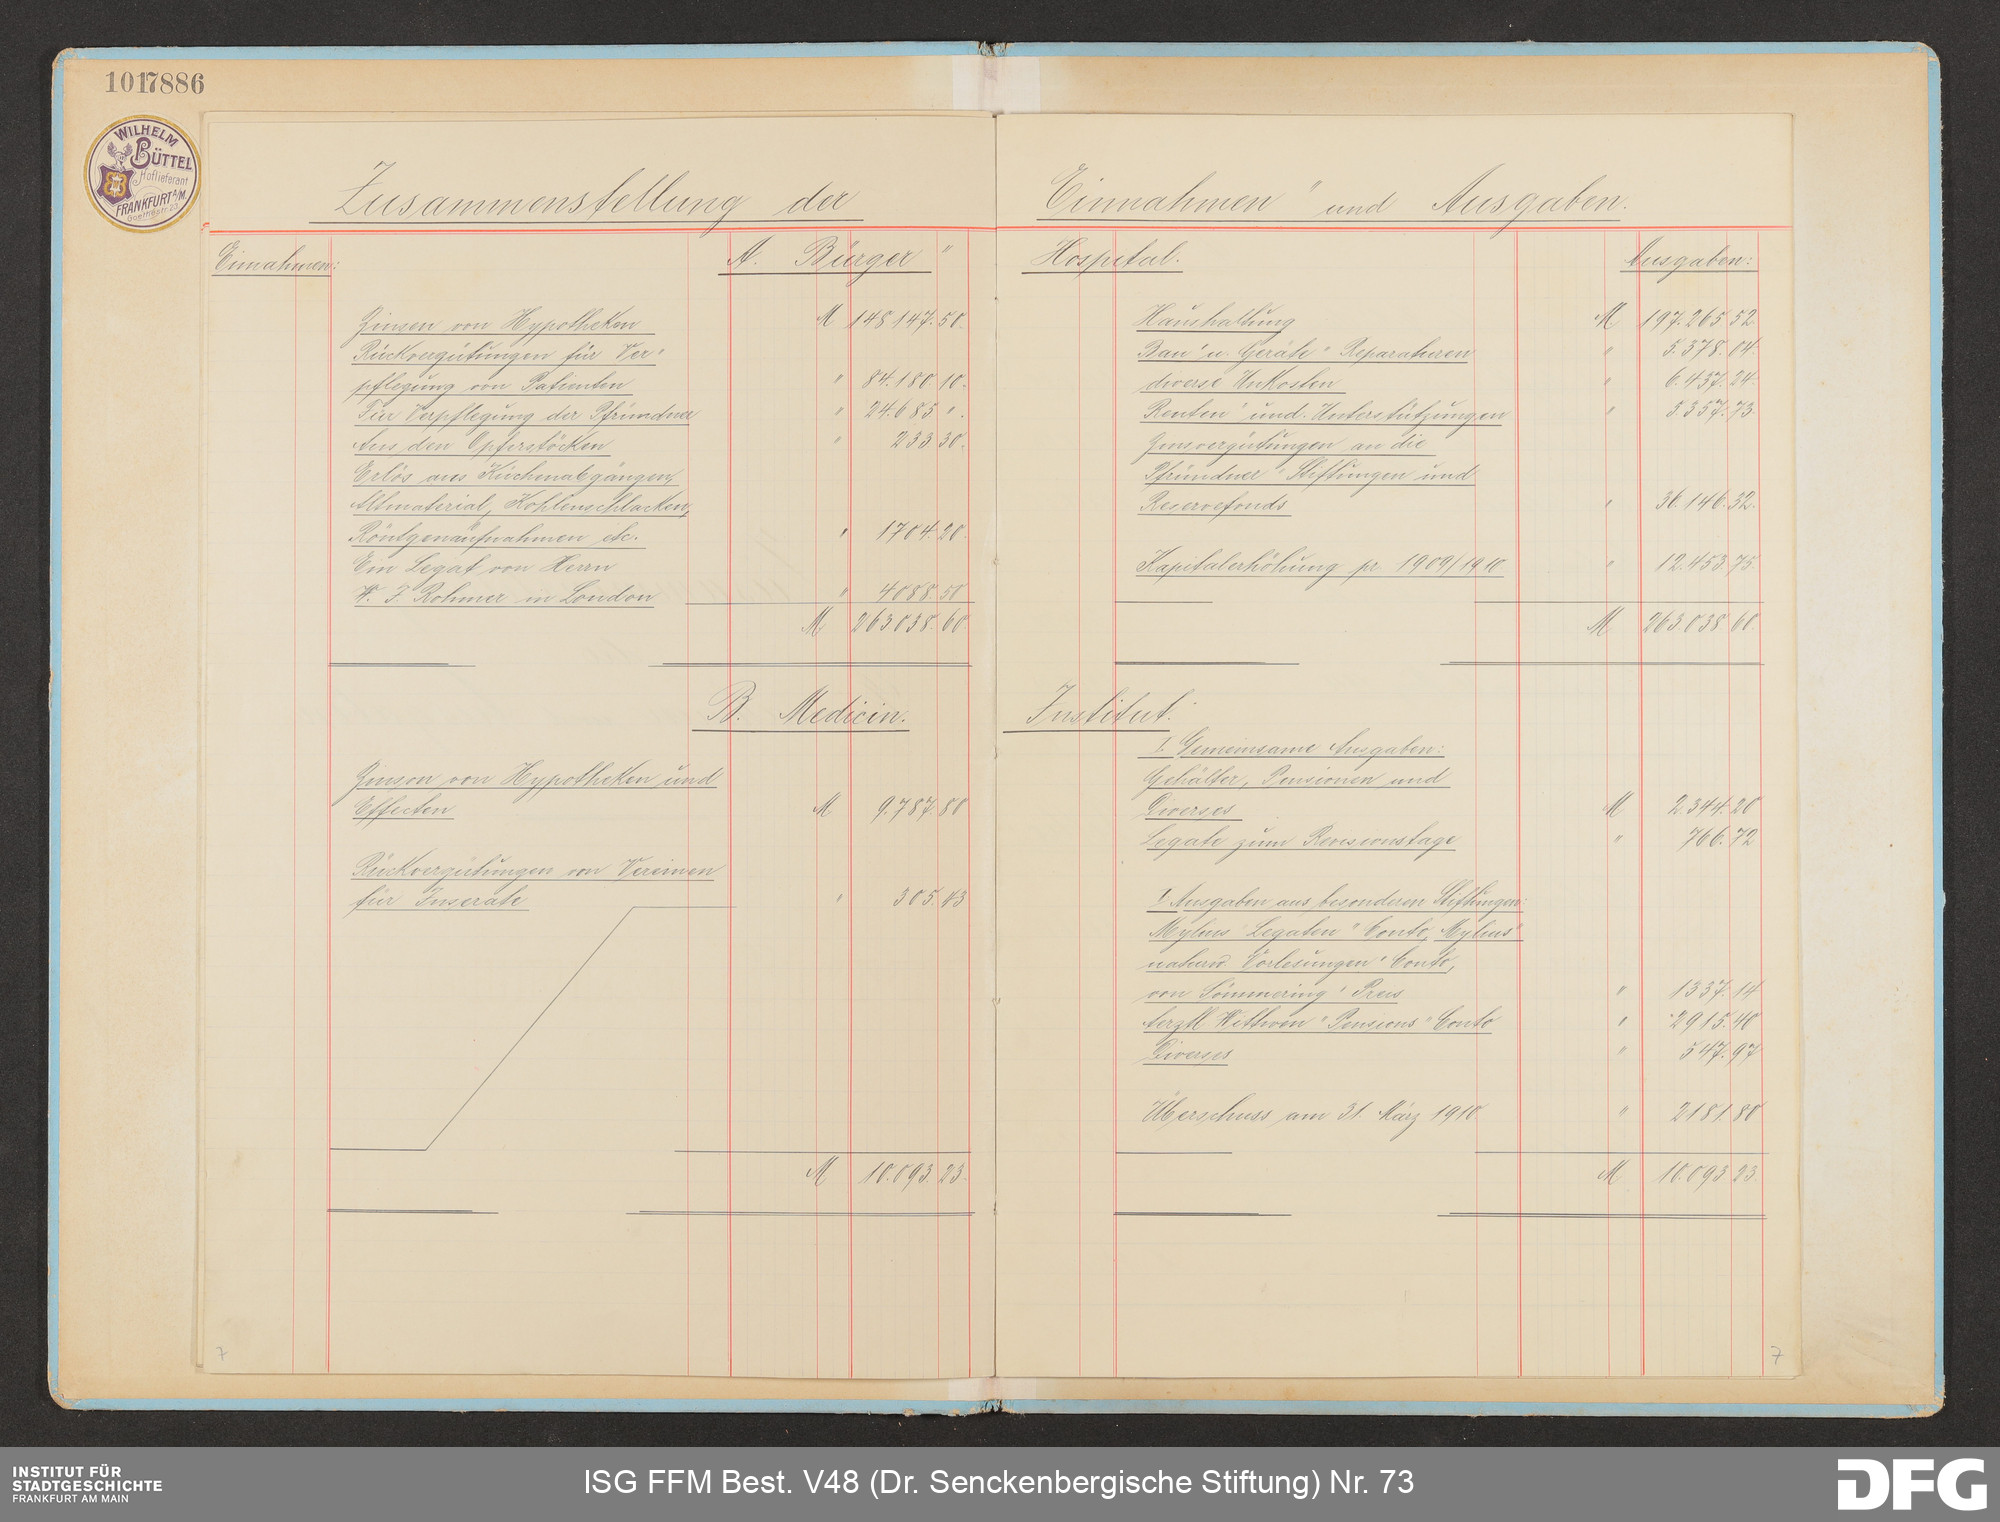 1017886
WILHELM
BÜTTEL
Hoflieferant
FRANKFURT A/M.
Goethestr. 23
Zusammenstellung der
Einnahmen:
A. Bürger "
Zinsen von Hypotheken M 148.147. 50.
Rückvergütungen für Ver"
pflegung von Patienten " 84.180. 10.
Für Verpflegung der Pfründner " 24.685 " .
Aus den Opferstöcken " 233 30.
Erlös aus Küchenabgängen,
Altmaterial, Kohlenschlacken,
Röntgenaufnahmen etc. " 1704. 20.
Ein Legat von Herrn
W. F. Rohmer in London " 4088. 50
M 263.038. 60.
B. Medicin.
Zinsen von Hypotheken und
Effecten M 9.787. 80
Rückvergütungen von Vereinen
für Inserate " 305. 43
M 10.093. 23.
7
Einnahmen " und Ausgaben.
Hospital.
Ausgaben:
Haushaltung M 197.265. 52
Bau " u. Geräte " Reparaturen " 5.378. 04.
diverse Unkosten " 6.437. 24.
Renten " und Unterstützungen " 5.357. 73.
Zinsvergütungen an die
Pfründner " Stiftungen und
Reservefonds " 36.146. 32.
Kapitalerhöhung pr. 1909/1910 " 12.453. 75.
M 263.038 60.
Institut.
I. Gemeinsame Ausgaben:
Gehälter, Pensionen und
Diverses M 2.344. 20
Legate zum Revisionstage " 766. 72
I. Ausgaben aus besonderen Stiftungen:
Mylius Legaten " Conto, Mylius "
naturw. Vorlesungen " Conto,
von Sömmering " Preis " 1337. 14
Aerztl. Wittwen " Pensions " Conto " 2915. 40
Diverses " 547. 97
Überschuss am 31. März 1910 " 2181. 80
M 10.093. 23.
7
INSTITUT FÜR
STADTGESCHICHTE
FRANKFURT AM MAIN
ISG FFM Best. V48 (Dr. Senckenbergische Stiftung) Nr. 73
DFG